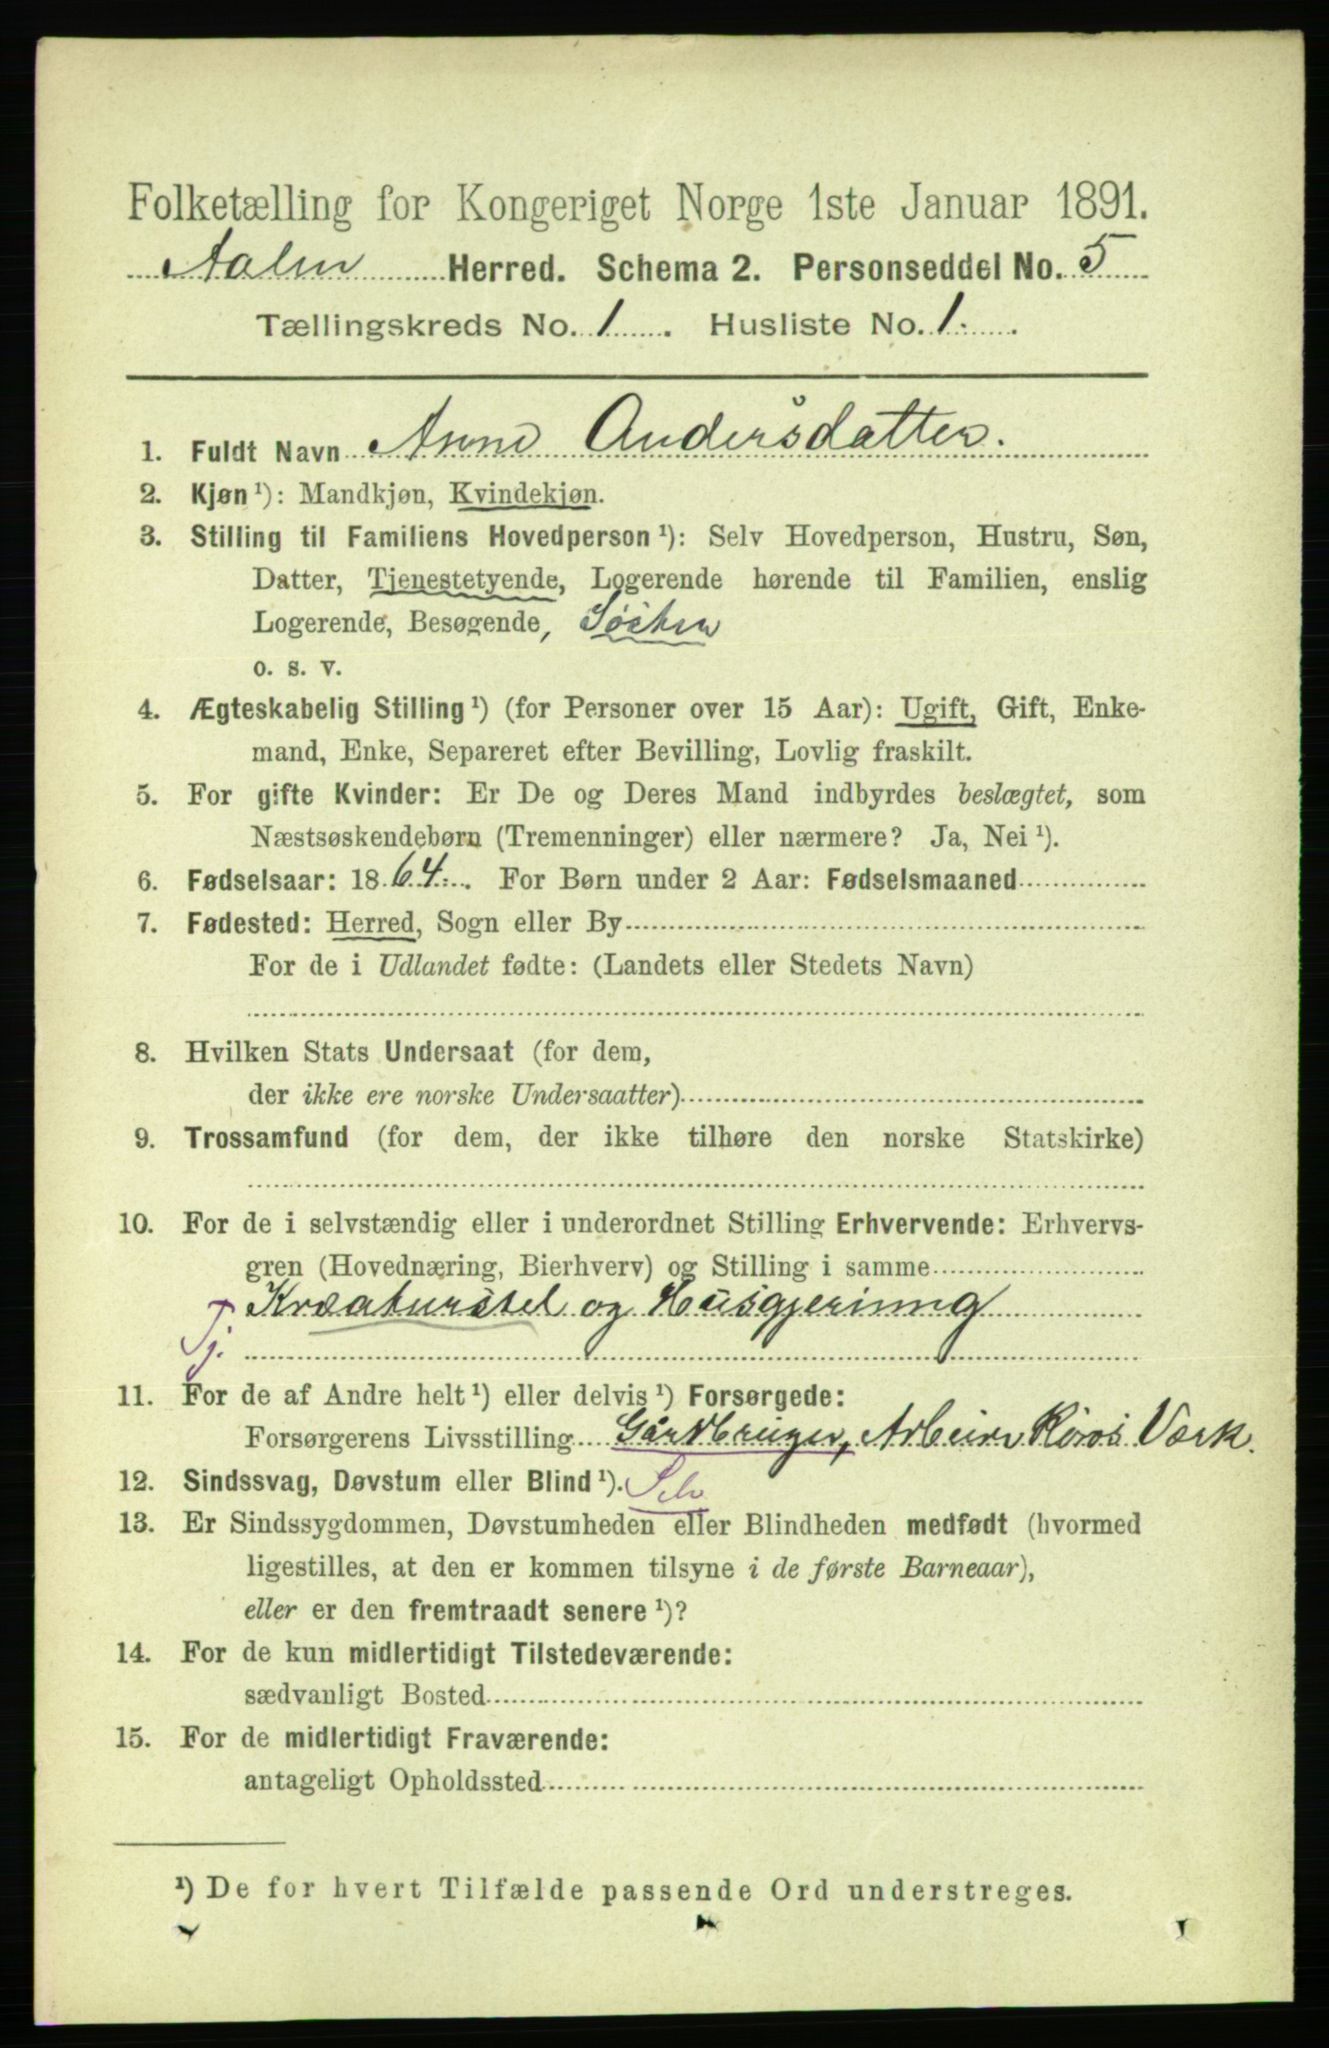 Folketælling for Kongeriget Norge 1ste Januar 1891.
Aalen Herred. Schema 2. Personseddel No. 5
Tællingskreds No. 1. Husliste No. 1.
1. Fuldt Navn Anne Andersdatter.
2. Kjøn ¹): Mandkjøn, Kvindekjøn.
3. Stilling til Familiens Hovedperson ¹): Selv Hovedperson, Hustru, Søn,
Datter, Tjenestetyende, Logerende hørende til Familien, enslig
Logerende, Besøgende, Söster
o. s. v.
4. Ægteskabelig Stilling ¹) (for Personer over 15 Aar): Ugift, Gift, Enke-
mand, Enke, Separeret efter Bevilling, Lovlig fraskilt.
5. For gifte Kvinder: Er De og Deres Mand indbyrdes beslægtet, som
Næstsøskendebørn (Tremenninger) eller nærmere? Ja, Nei ¹).
6. Fødselsaar: 1864. For Børn under 2 Aar: Fødselsmaaned
7. Fødested: Herred, Sogn eller By
For de i Udlandet fødte: (Landets eller Stedets Navn)
8. Hvilken Stats Undersaat (for dem,
der ikke ere norske Undersaatter)
9. Trossamfund (for dem, der ikke tilhøre den norske Statskirke)
10. For de i selvstændig eller i underordnet Stilling Erhvervende: Erhvervs-
gren (Hovednæring, Bierhverv) og Stilling i samme
Kræaturstel og Husgjerinng
Tj.
11. For de af Andre helt ¹) eller delvis ¹) Forsørgede:
Forsørgerens Livsstilling Gårdbruger, Arbeier Röros Værk.
12. Sindssvag, Døvstum eller Blind ¹). Selv
13. Er Sindssygdommen, Døvstumheden eller Blindheden medfødt (hvormed
ligestilles, at den er kommen tilsyne i de første Barneaar),
eller er den fremtraadt senere ¹)?
14. For de kun midlertidigt Tilstedeværende:
sædvanligt Bosted
15. For de midlertidigt Fraværende:
antageligt Opholdssted
¹) De for hvert Tilfælde passende Ord understreges.